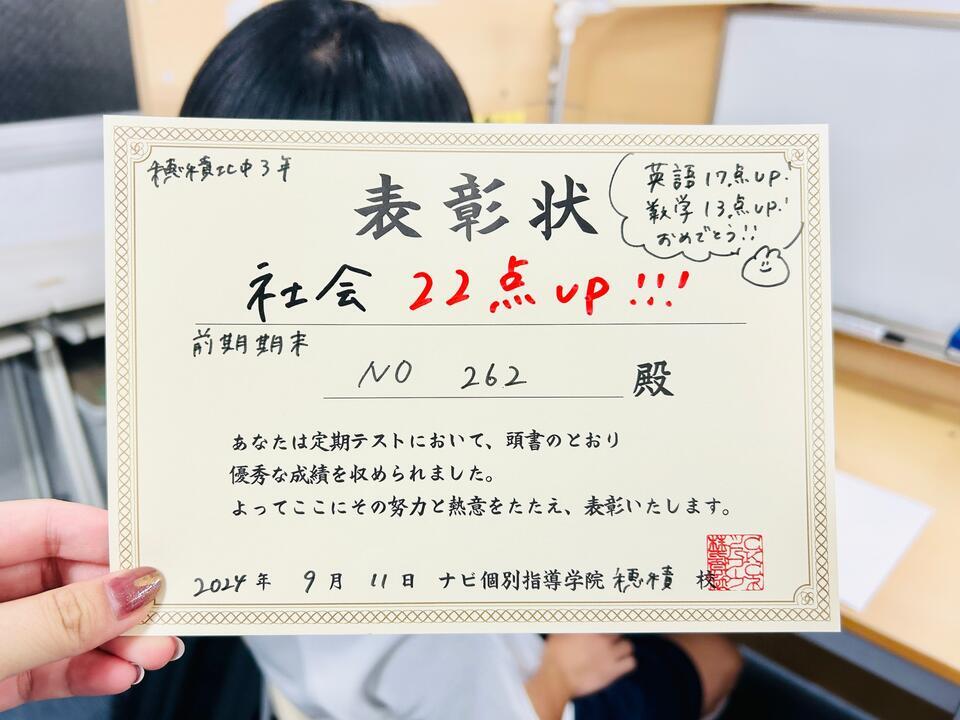 穂積北中3年
表彰状
英語17点up!
数学13点up!
おめでとう!!
社会 22点up!!!
前期期末
NO 262 殿
あなたは定期テストにおいて、頭書のとおり
優秀な成績を収められました。
よってここにその努力と熱意をたたえ、表彰いたします。
2024年 9月 11日 ナビ個別指導学院 穂積 校